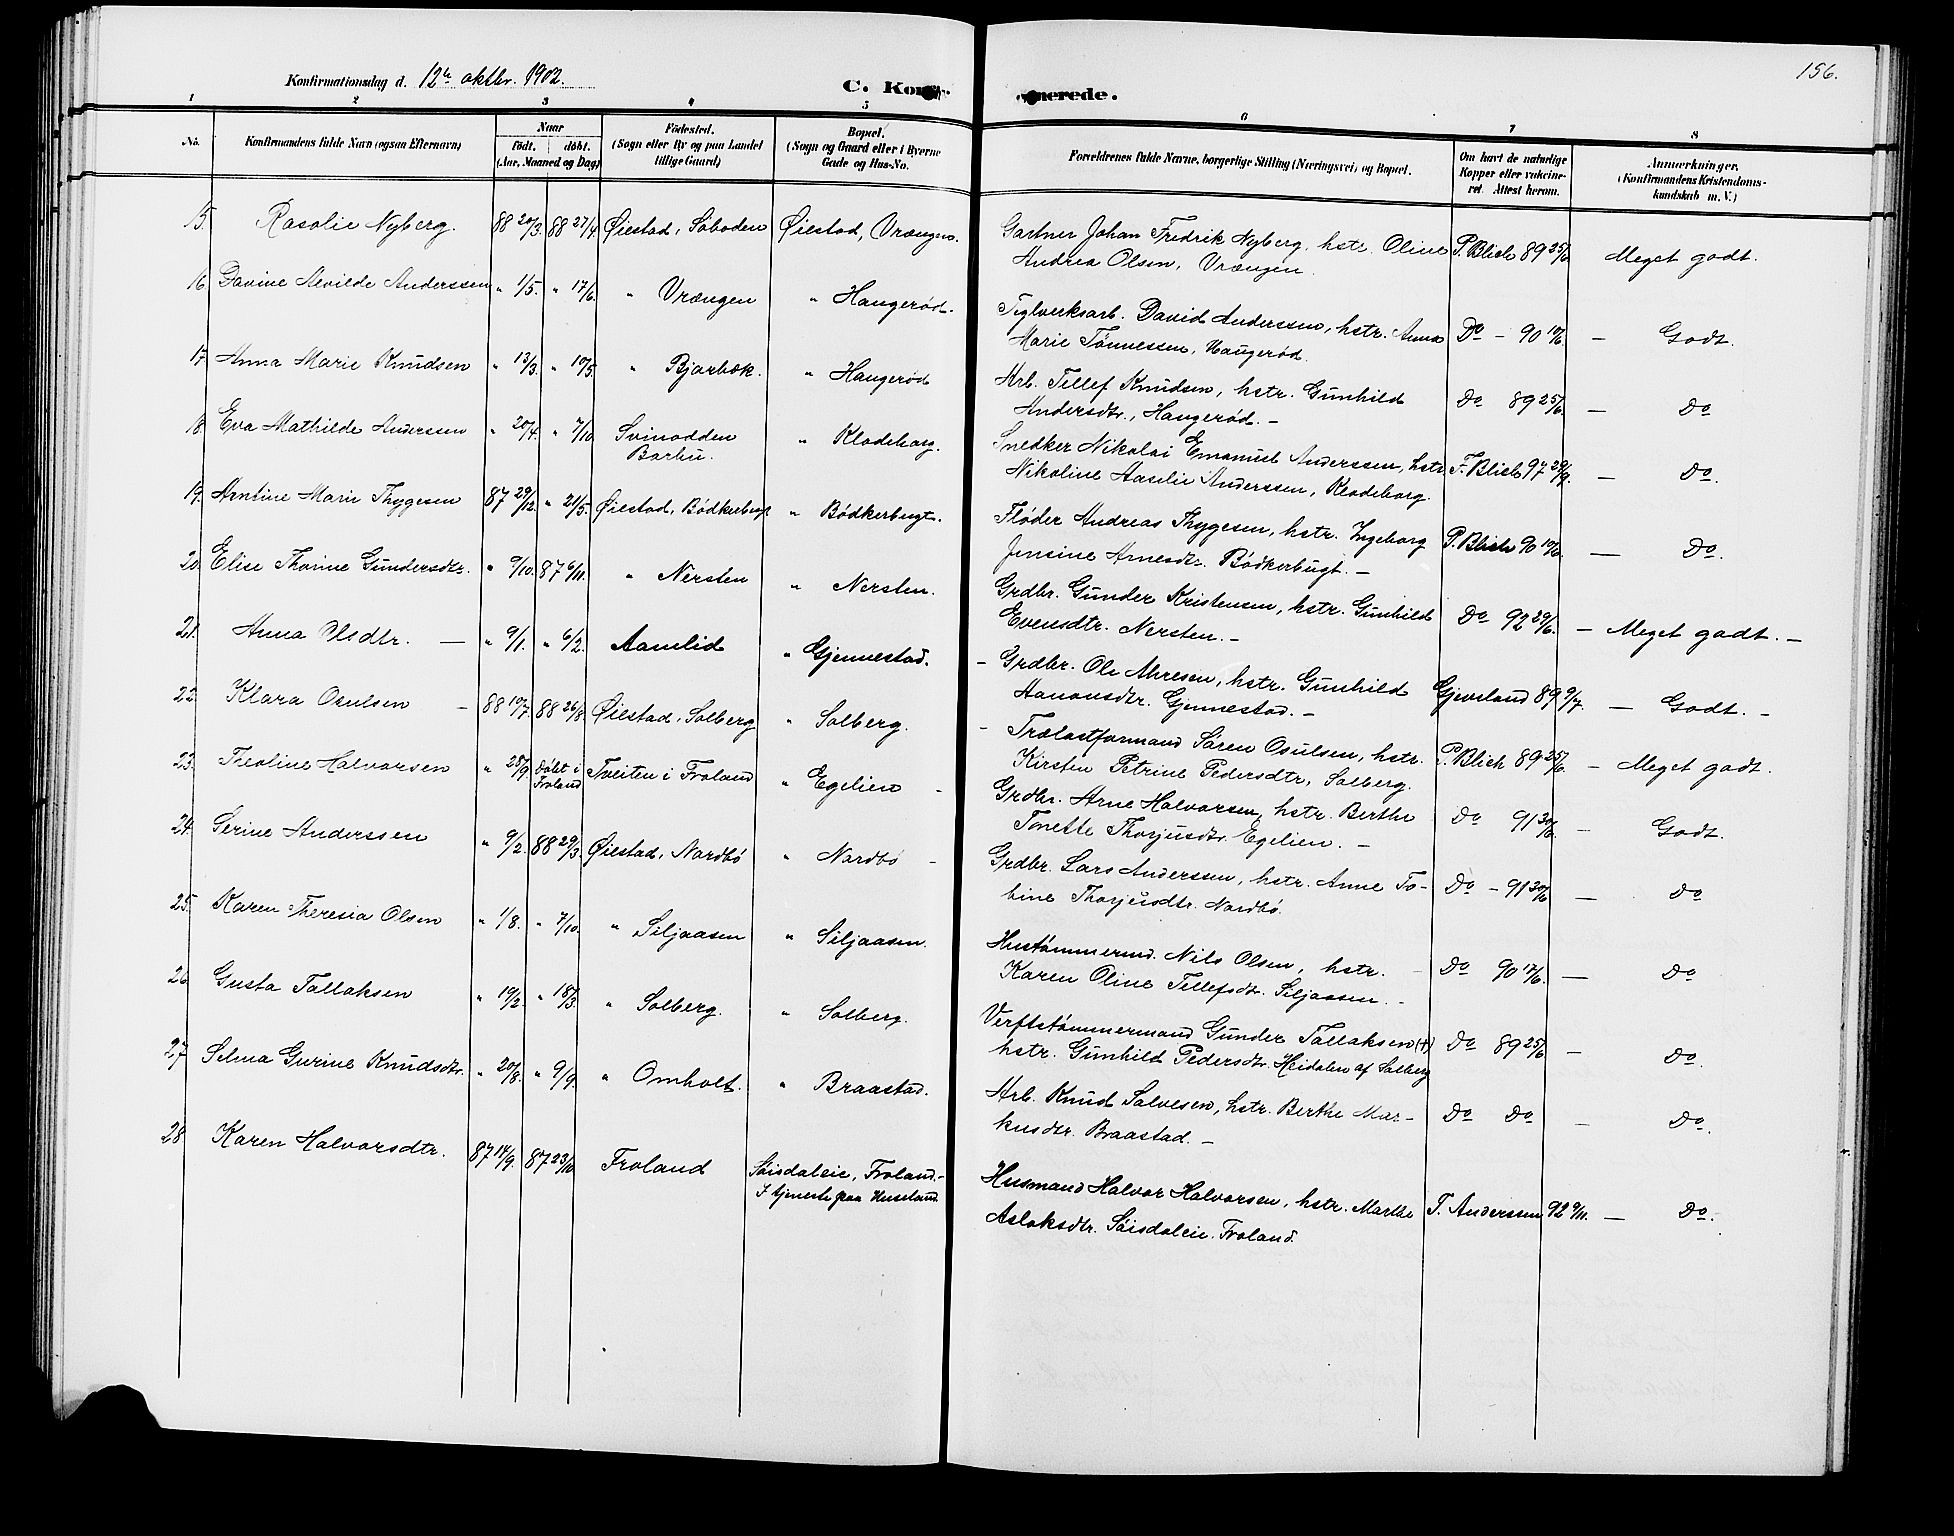 156.
Konfirmationsdag d. 12te oktbr. 1902.
C. Konf
merede.
1 2 3 4 5 6 7 8
No. Konfirmandens fulde Navn (ogsaa Efternavn) Naar født. døbt. (Aar, Maaned og Dag) Fødested. (Sogn eller By og paa Landet tillige Gaard) Bopæl. (Sogn og Gaard eller i Byerne Gade og Hus-No. Forældrenes fulde Navne, borgerlige Stilling (Næringsvei) og Bopæl. Om havt de naturlige Kopper eller vaccineret. Attest herom. Anmærkninger. (Konfirmandens Kristendomskundskab m. V.)
15. Rasolie Nyberg. 88 20/3. 88 27/4 Øiestad, Søboden Øiestad, Vrængen. Gartner Johan Fredrik Nyberg, hstr. Oline P. Blich 89 25/6 Meget godt.
Andrea Olsen, Vrængen.
16. Davine Alvilde Anderssen " 1/5. " 17/6. " Vrængen " Haugerød. Teglverksarb. David Anderssen, hstr. Anna Do - 90 10/6. — Godt.
Marie Tønnessen, Haugerød.
17. Anna Marie Knudsen " 13/3. " 10/5. " Bjørbæk. " Haugerød Arb. Tellef Knudsen, hstr. Gunhild Do 89 25/6. — Do
Andersdtr., Haugerød. -
18. Eva Mathilde Andersen " 20/4. " 7/10. Svinodden " Klodeborg. Snedker Nikolai Emanuel Anderssen, hstr. F. Blich 97 29/9. — Do.
Barbu. Nikoline Aaselie Anderssen, Klodeborg.
19. Arntine Marie Thygesen 87 29/12. " 21/5. Øiestad, Bødkerbugt " Bødkerbugt. Fløder Andreas Thygesen, hstr. Ingeborg P. Blich 90 10/6. — Do.
Jensine Arnesdtr. Bødkerbugt. -
20. Elise Thorine Gundersdtr. " 9/10. 87 6/11. " Nersten " Nersten. Grdbr. Gunder Kristensen, hstr. Gunhild Do 92 29/6. — Meget godt. -
Evensdtr. Nersten. -
21. Anna Olsdtr. — " 9/1. " 6/2. Aamlid " Gjennestad. - Grdbr. Ole Ahresen, hstr. Gunhild Gjeveland 89 9/7. — Godt. -
Aanonsdtr. Gjennestad. -
22. Klara Osulsen - 88 10/7 88 26/8 Øiestad, Solberg " Solberg. - Trælastformand Søren Osulsen, hstr. P. Blich 89 25/6. — Meget godt.
Kirsten Petrine Pedersdtr, Solberg.
23. Theoline Halvorsen " 28/9. Døbt i Froland Tveiten i Froland " Egelien - Grdbr. Arne Halvorsen, hstr. Berthe Do 91 30/6. — Godt.
Tonette Thorjusdtr. Egelien. -
24. Serine Anderssen " 9/2. 88 29/3. Øiestad, Nordbø " Nordbø - Grdbr. Lars Anderssen, hstr. Anne To- Do - 91 30/6 — Do
bine Thorjusdtr. Nordbø.
25. Karen Theresia Olsen " 1/8. " 7/10. " Siljaasen " Siljaasen. Hustømmermd. Nils Olsen, hstr. - Do 90 17/6. — Do
Karen Oline Tellefsdtr. Siljaasen. -
26. Gusta Tallaksen " 19/2. " 18/3 " Solberg. " Solberg. Verftstømmermand Gunder Tallaksen (†) Do 89 25/6 — Do.
hstr. Gunhild Pedersdtr. Heidalen af Solberg
27. Selma Gurine Knudsdtr. " 20/8. " 9/9. " Omholt. " Braastad. Arb. Knud Salvesen, hstr. Berthe Mar- Do Do - Do.
kusdtr. Braastad. -
28. Karen Halvorsdtr. 87 14/9. 87 23/10 Froland Søisdaleie, Froland. - Husmand Halvor Halvorsen, hstr. Marthe T. Anderssen 92 9/11. — Do.
I tjeneste paa Huseland. Aslaksdtr. Søisdaleie. Froland.